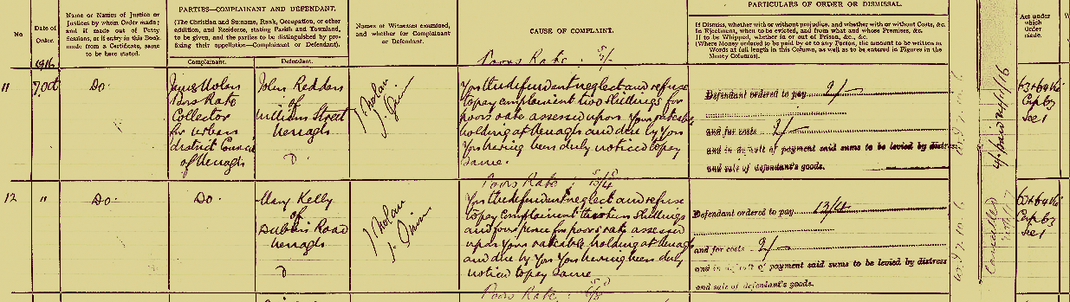 PARTIES—COMPLAINANT AND DEFENDANT.
PARTICULARS OF ORDER OR DISMISSAL.
No
Date of Order.
Name or Names of Justice or Justices by whom Order made; and if made out of Petty Sessions, or if entry in this Book made from a Certificate, same to be here stated.
(The Christian and Surname, Rank, Occupation, or other addition, and Residence, stating Parish and Townland, to be given, and the parties to be distinguished by prefixing their appellation—Complainant or Defendant).
Complainant.
Defendant.
Names of Witnesses examined, and whether for Complainant or Defendant.
CAUSE OF COMPLAINT.
If Dismiss, whether with or without prejudice, and whether with or without Costs, &c.
In Ejectment, when to be executed, and from what and whose Premises, &c.
If to be Whipped, whether in or out of Prison, &c. &c.
(Where Money ordered to be paid by or to any Parties, the amount to be written in Words at full length in this Column, as well as to be entered in Figures in the Money Columns).
Act under which Order made.
1916
Poors Rate:
11
7 Oct
Do
James Nolan
Poor Rate
Collector
for urban
district Council
of Nenagh
John Redden
of
William Street
Nenagh
D
J. Nolan
You the defendant neglect and refuse
to pay complainant two shillings for
poors rate assessed upon your rateable
holding at Nenagh and due by you
You having been duly noticed to pay
same.
Defendant ordered to pay 2/-
and for costs 2/-
and in default of payment said sums to be levied by distress
and sale of defendant's goods.
Poors Rate: 13/4
12
"
Do
Do
Mary Kelly
of
Dublin Road
Nenagh
D
J. Nolan
You the defendant neglect and refuse
to pay complainant thirteen shillings
and four pence for poors rate assessed
upon your rateable holding at Nenagh
and due by you You having been duly
noticed to pay same
Defendant ordered to pay 13/4
and for costs 2/-
and in default of payment said sums to be levied by distress
and sale of defendant's goods.
Poors Rate: